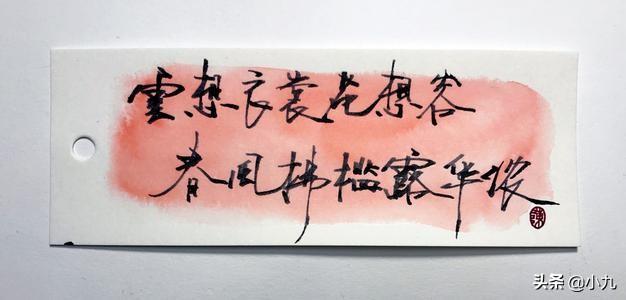 雲想衣裳花想容
春風拂檻露华浓
头条 @小九